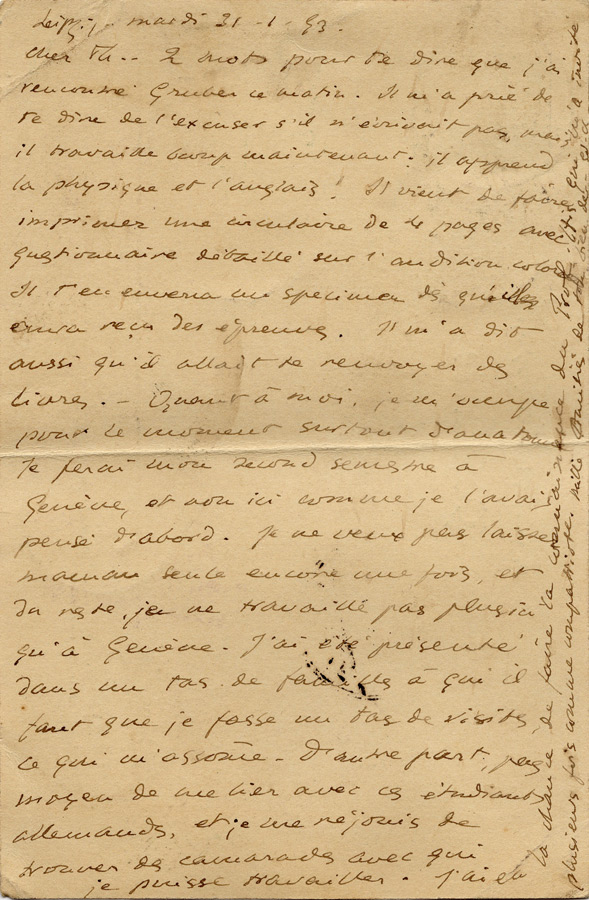 Leipzig, mardi 31-1-93.
Cher Th.. 2 mots pour te dire que j'ai
rencontré Gruber ce matin. Il m'a prié de
te dire de l'excuser s'il n'écrivait pas, mais
il travaille beaucoup maintenant; il apprend
la physique et l'anglais! Il vient de faire
imprimer une circulaire de 4 pages avec
questionnaire détaillé sur l'audition color
Il t'en enverra un specimen dès qu'il
aura reçu des épreuves. Il m'a dit
aussi qu'il allait te renvoyer des
livres. - Quant à moi, je m'occupe
pour le moment surtout d'anatomie
Je ferai mon second semestre à
Genève, et non ici comme je l'avais
pensé d'abord. Je ne veux pas laisser
maman seule encore une fois, et
du reste, je ne travaille pas plus ici
qu'à Genève. J'ai été présenté
dans un tas de familles à qui il
faut que je fasse un tas de visites,
ce qui m'assome. D'autre part, pas
moyen de me lier avec ces étudiants
allemands, et je me réjouis de
trouver des camarades avec qui
je puisse travailler. J'ai eu
la chance de faire la connaissance du Prof. His qui m'a invité
plusieurs fois comme compatriote. Mille amitiés de ton bien dévoué